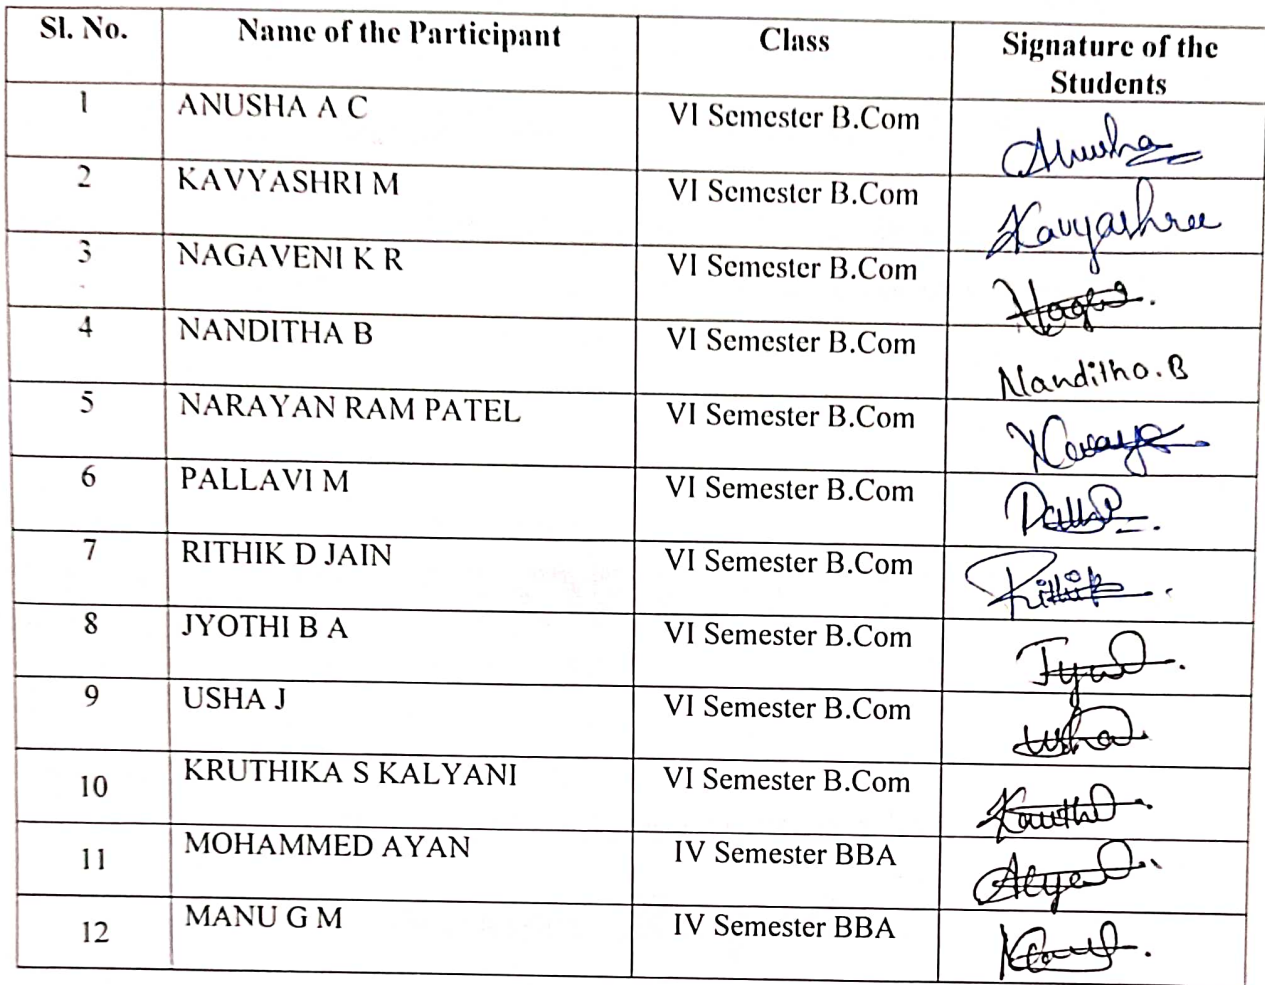 Sl. No. Name of the Participant Class Signature of the
Students
1 ANUSHA A C VI Semester B.Com Anusha
2 KAVYASHRI M VI Semester B.Com Kavyashree
3 NAGAVENI K R VI Semester B.Com
4 NANDITHA B VI Semester B.Com Nanditha.B
5 NARAYAN RAM PATEL VI Semester B.Com
6 PALLAVI M VI Semester B.Com
7 RITHIK D JAIN VI Semester B.Com Rithik
8 JYOTHI B A VI Semester B.Com
9 USHA J VI Semester B.Com Usha
10 KRUTHIKA S KALYANI VI Semester B.Com
11 MOHAMMED AYAN IV Semester BBA
12 MANU G M IV Semester BBA